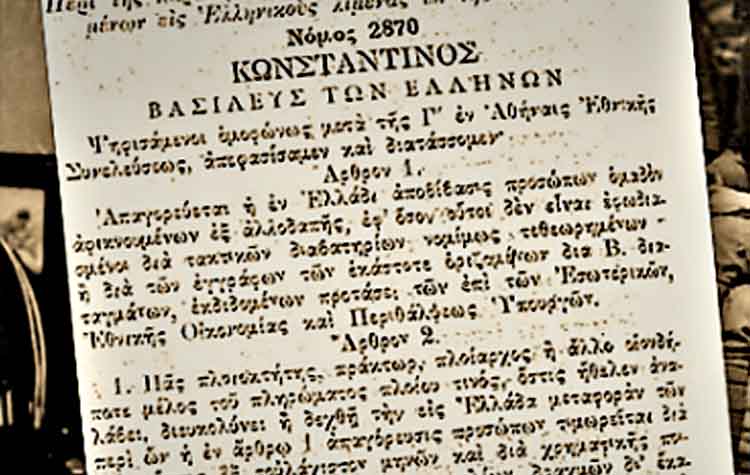 Περὶ τῆς
μένων εἰς Ἑλληνικοὺς λιμένας ἐκ τῆς
Νόμος 2870
ΚΩΝΣΤΑΝΤΙΝΟΣ
ΒΑΣΙΛΕΥΣ ΤΩΝ ΕΛΛΗΝΩΝ
Ψηφισάμενοι ὁμοφώνως μετὰ τῆς Γ' ἐν Ἀθήναις Ἐθνικῆς
Συνελεύσεως, ἀπεφασίσαμεν καὶ διατάσσομεν·
Ἄρθρον 1.
Ἀπαγορεύεται ἡ ἐν Ἑλλάδι ἀποβίβασις προσώπων ὁμαδὸν
ἀφικνουμένων ἐξ ἀλλοδαπῆς, ἐφ' ὅσον οὗτοι δὲν εἶναι ἐφωδια-
σμένοι διὰ τακτικῶν διαβατηρίων νομίμως τεθεωρημένων
ἢ διὰ τῶν ἐγγράφων τῶν ἑκάστοτε ὁριζομένων δια Β. δια-
ταγμάτων, ἐκδιδομένων προτάσει τῶν ἐπὶ τῶν Ἐσωτερικῶν,
Ἐθνικῆς Οἰκονομίας καὶ Περιθάλψεως Ὑπουργῶν.
Ἄρθρον 2.
1. Πᾶς πλοιοκτήτης, πράκτωρ, πλοίαρχος ἢ ἄλλο οἱονδή-
ποτε μέλος τοῦ πληρώματος πλοίου τινός, ὅστις ἤθελεν ἀνα-
λάβει, διευκολύνει ἢ δεχθῆ τὴν εἰς Ἑλλάδα μεταφορὰν τῶν
περὶ ὧν ἡ ἐν ἄρθρῳ 1 ἀπαγόρευσις προσώπων τιμωρεῖται διὰ
τοὐλάχιστον μηνῶν καὶ διὰ χρηματικῆς
δραχμῶν δι' ἕκα-